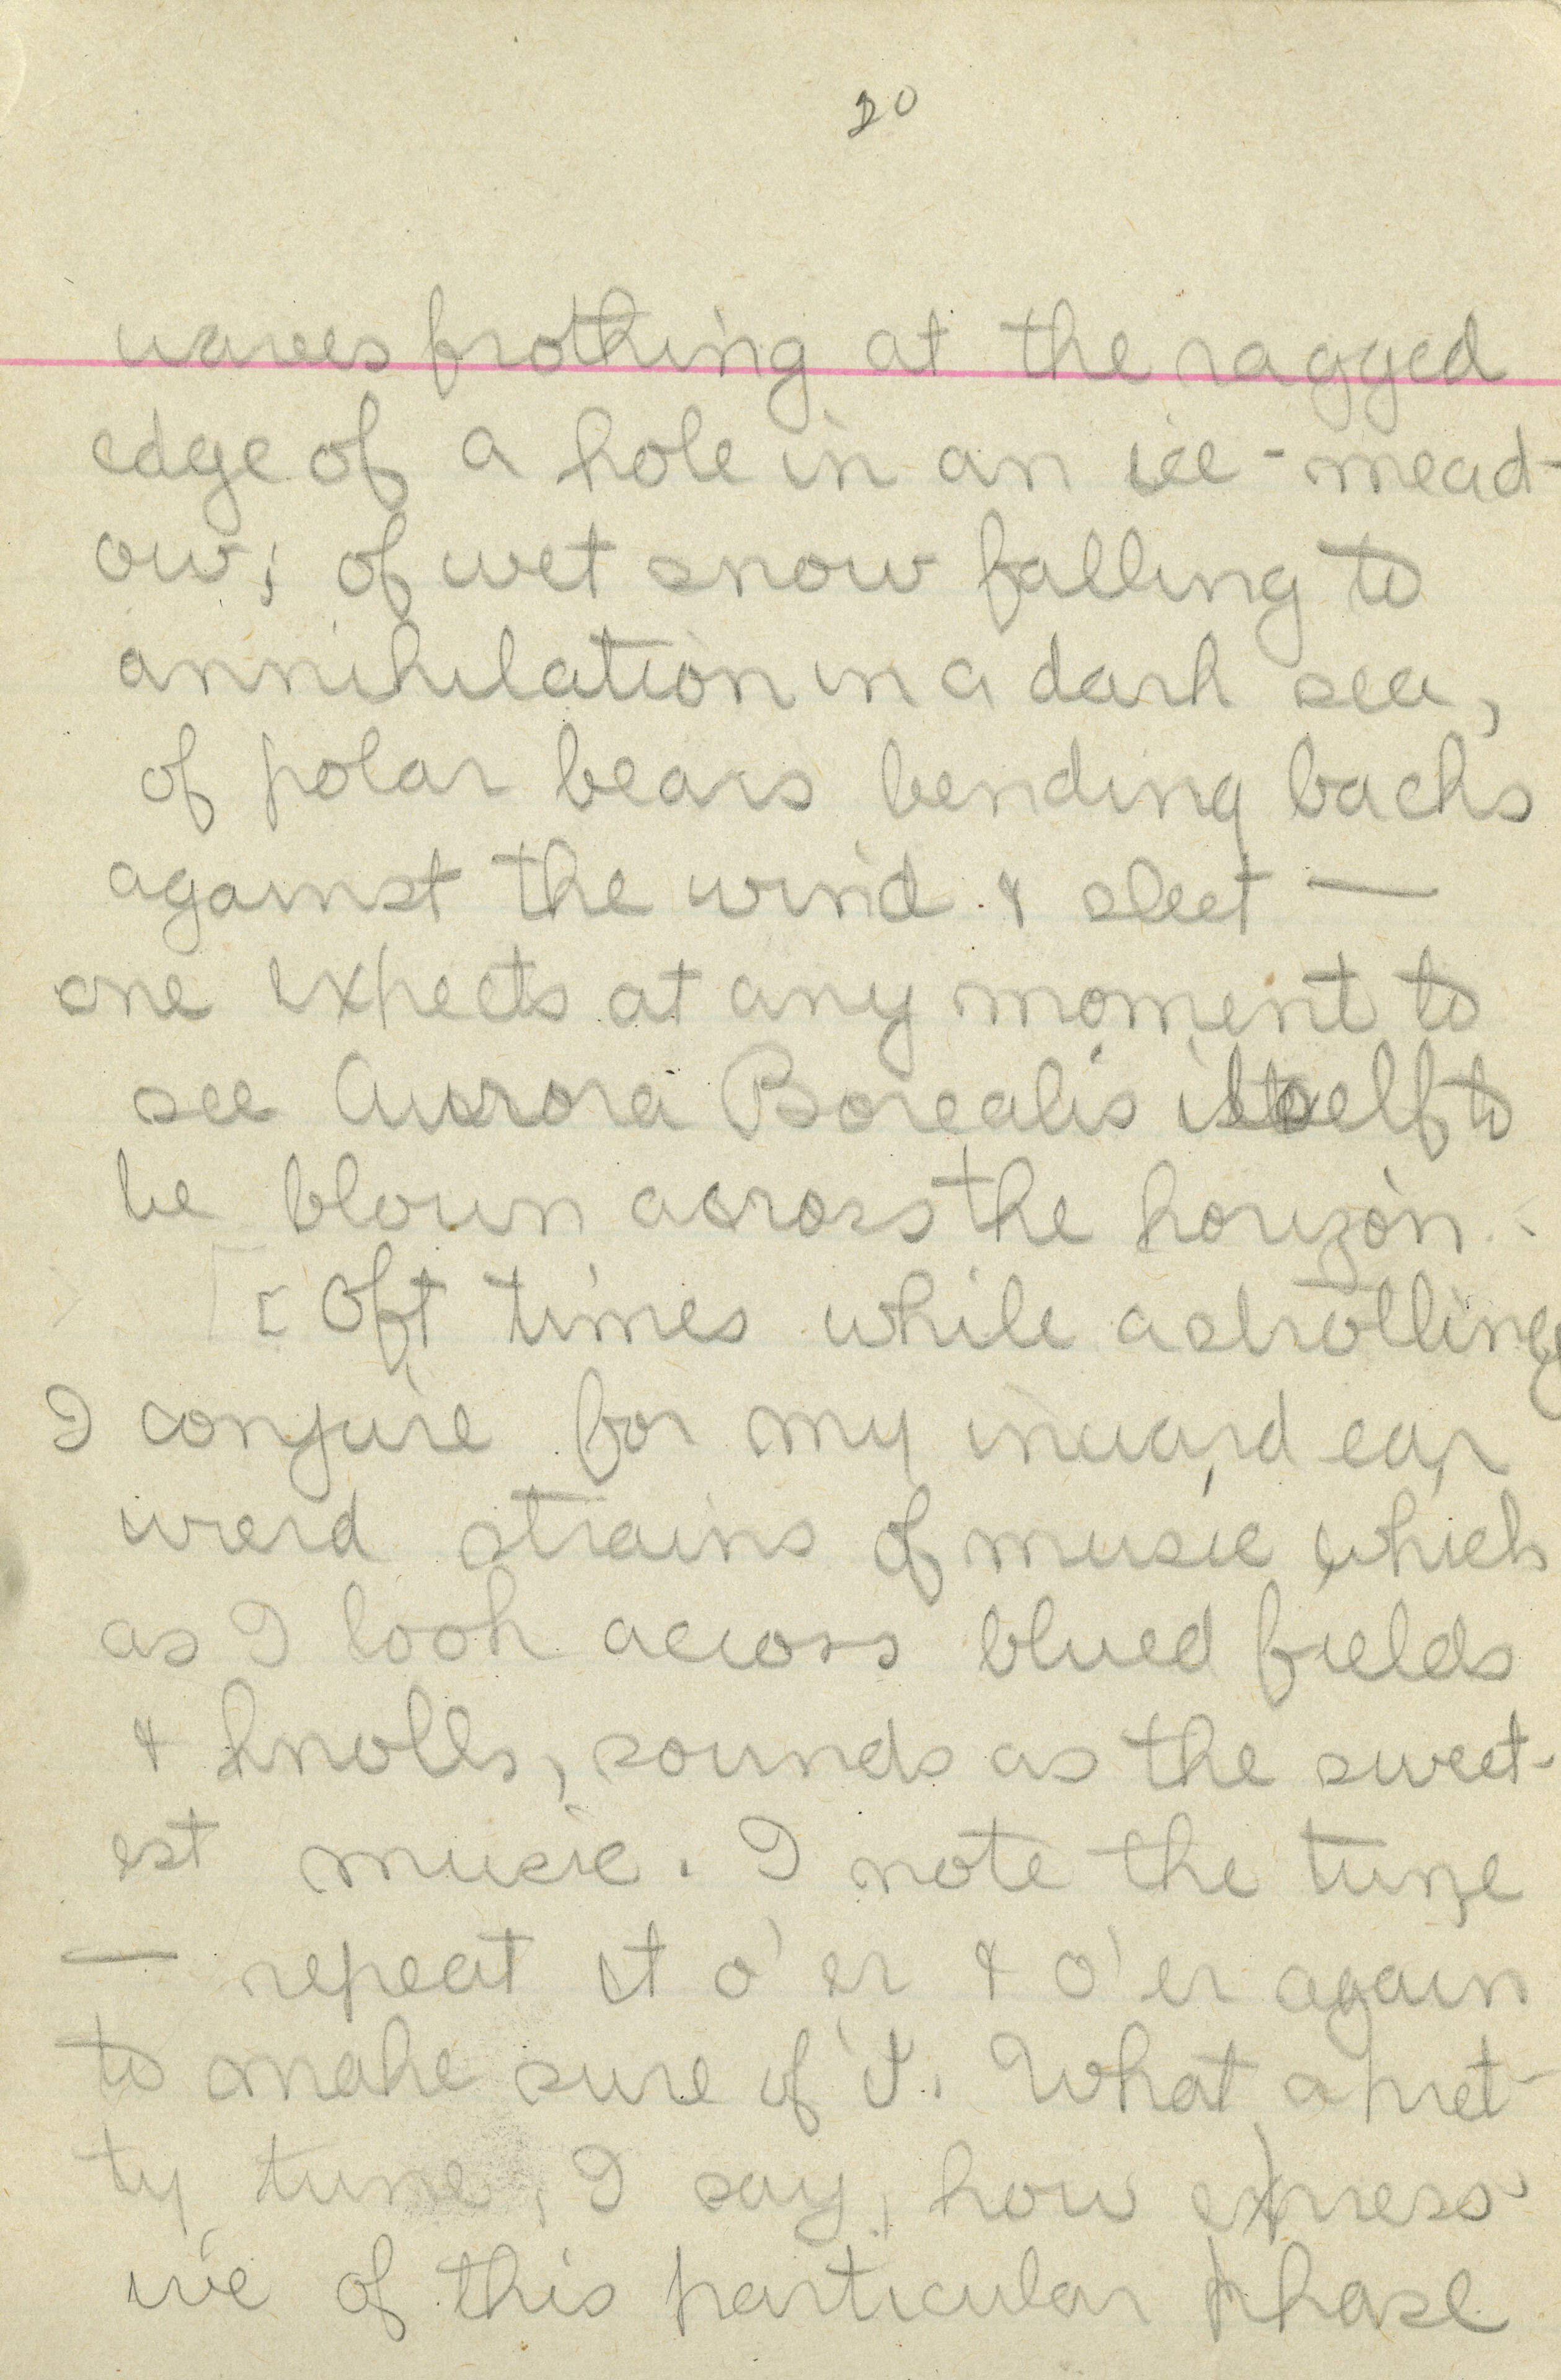 20
waves frothing at the ragged
edge of a hole in an ice-mead-
ow; of wet snow falling to
annihilation in a dark sea,
of polar bears bending backs
against the wind & sleet —
one expects at any moment to
see Aurora Borealis itself to
be blown across the horizon.
[Oft times while a strolling
I conjure for my inward ear
wierd strains of music which
as I look across blued fields
& knolls, sounds as the sweet-
est music. I note the tune
— repeat it o'er & o'er again
to make sure of 't. What a pret-
ty tune, I say, how express-
ive of this particular phase